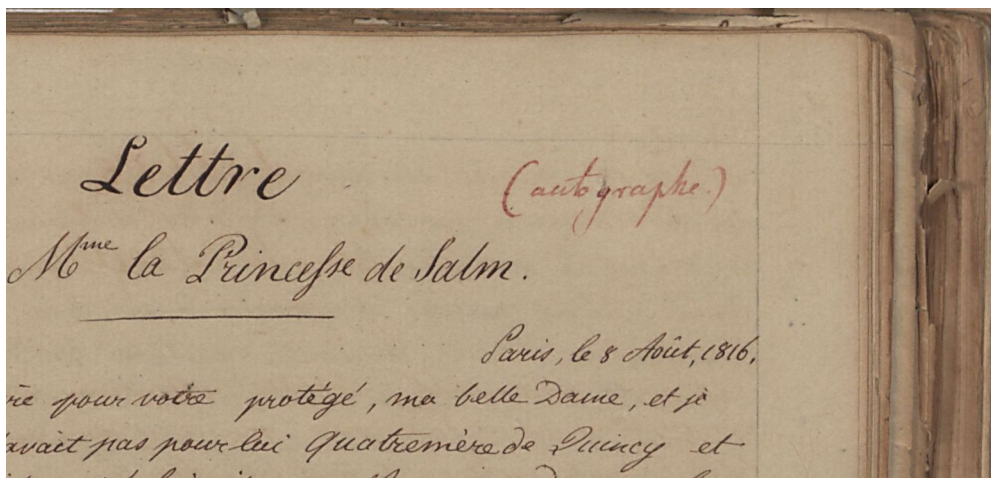 Lettre (autographe.)
Mme la Princesse de Salm.
Paris, le 8 Août, 1816.
pour votre protégé, ma belle Dame, et je
avait pas pour lui Quatremère de Quincy et